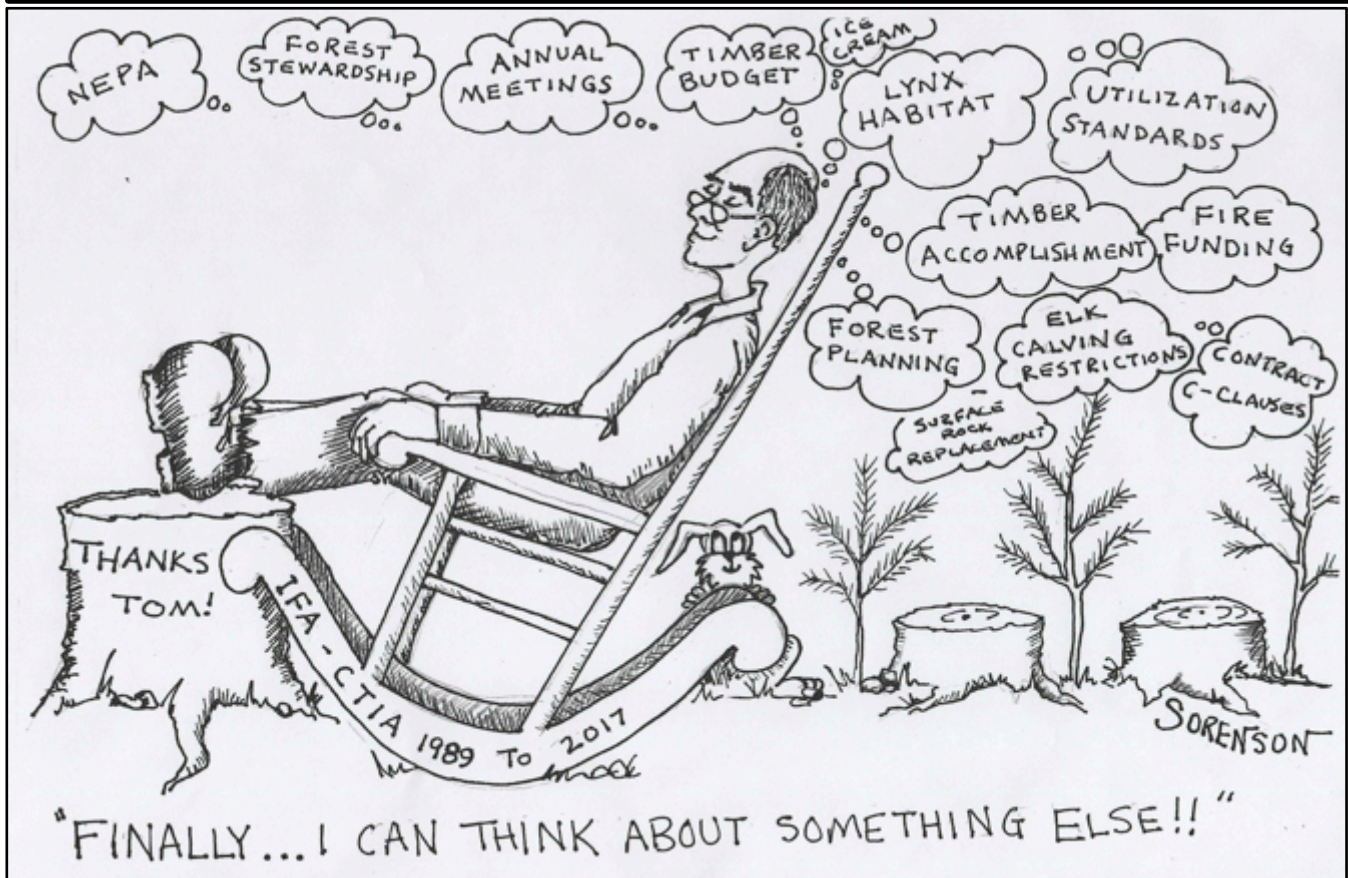 NEPA
FOREST
STEWARDSHIP
ANNUAL
MEETINGS
TIMBER
BUDGET
ICE
CREAM
LYNX
HABITAT
UTILIZATION
STANDARDS
TIMBER
ACCOMPLISHMENT
FIRE
FUNDING
FOREST
PLANNING
ELK
CALVING
RESTRICTIONS
CONTRACT
C-CLAUSES
SURFACE
ROCK
REPLACEMENT
THANKS
TOM!
IFA-CTIA 1989 TO 2017
SORENSON
"FINALLY... I CAN THINK ABOUT SOMETHING ELSE!!"